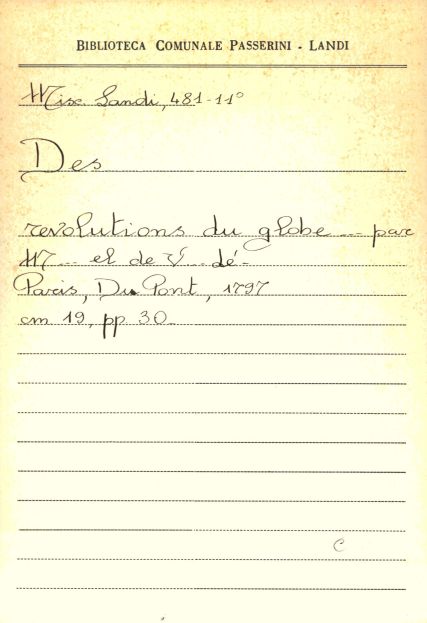 BIBLIOTECA COMUNALE PASSERINI - LANDI
Misc Landi, 481-11°
Des
revolutions du globe ... par
M ... el de V ... dé-
Paris, Du Pont, 1797
cm 19, pp 30
C